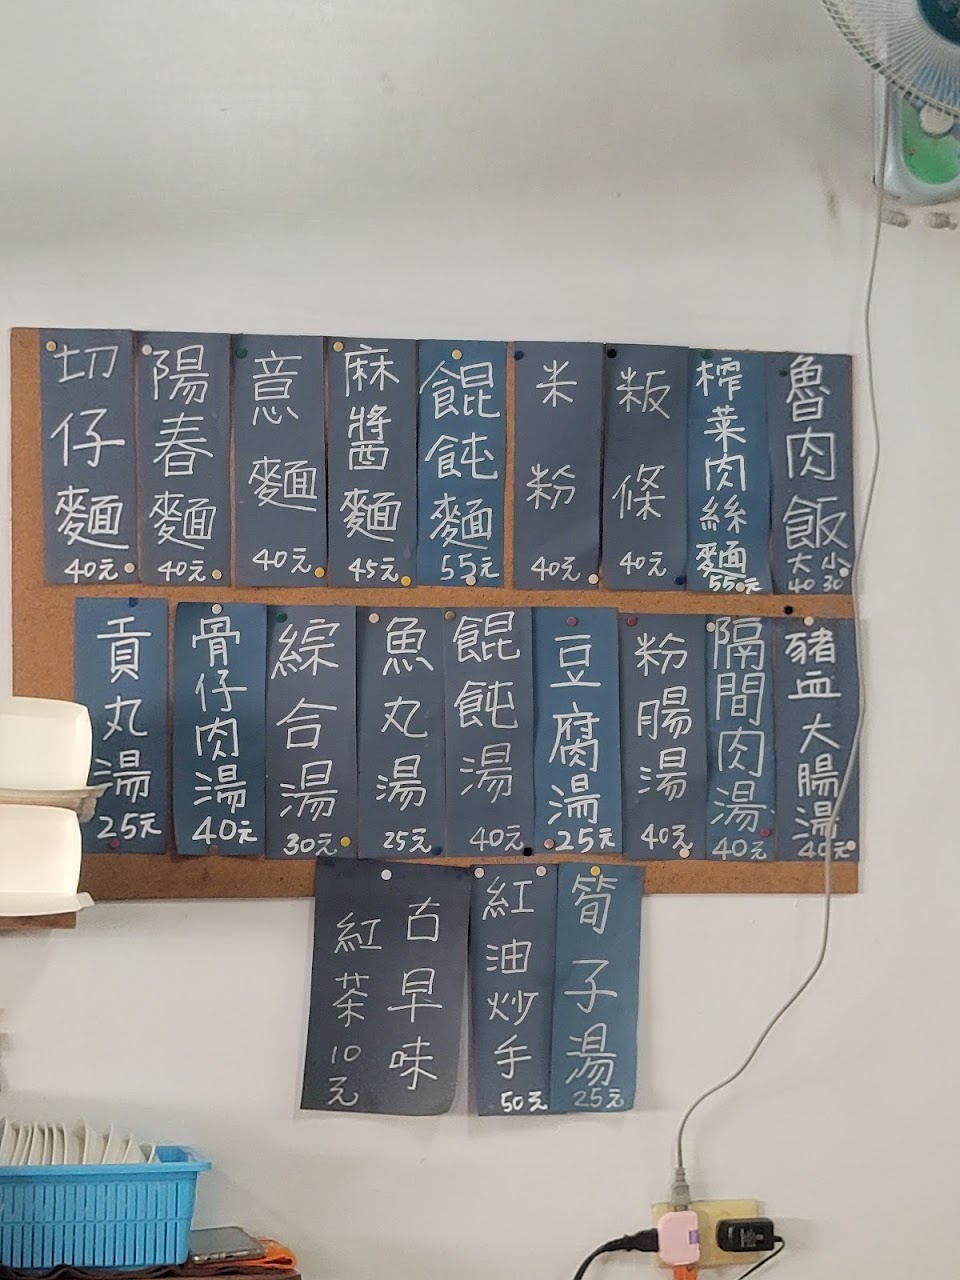 魯肉飯 大40 小30
榨菜肉絲麵 55元
粄條 40元
米粉 40元
餛飩麵 55元
麻醬麵 45元
意麵 40元
陽春麵 40元
切仔麵 40元
豬血大腸湯 40元
隔間肉湯 40元
粉腸湯 40元
豆腐湯 25元
餛飩湯 40元
魚丸湯 25元
綜合湯 30元
骨仔肉湯 40元
貢丸湯 25元
筍子湯 25元
紅油炒手 50元
古早味
紅茶 10元